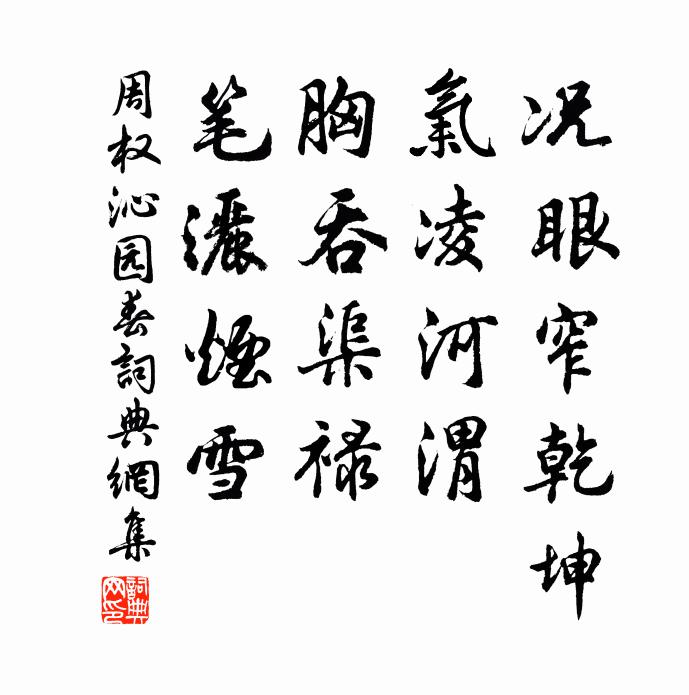 况眼窄乾坤
氣凌河渭
胸吞渠禄
笔灑煙雪
周权沁园春詞典網集
詞典网印